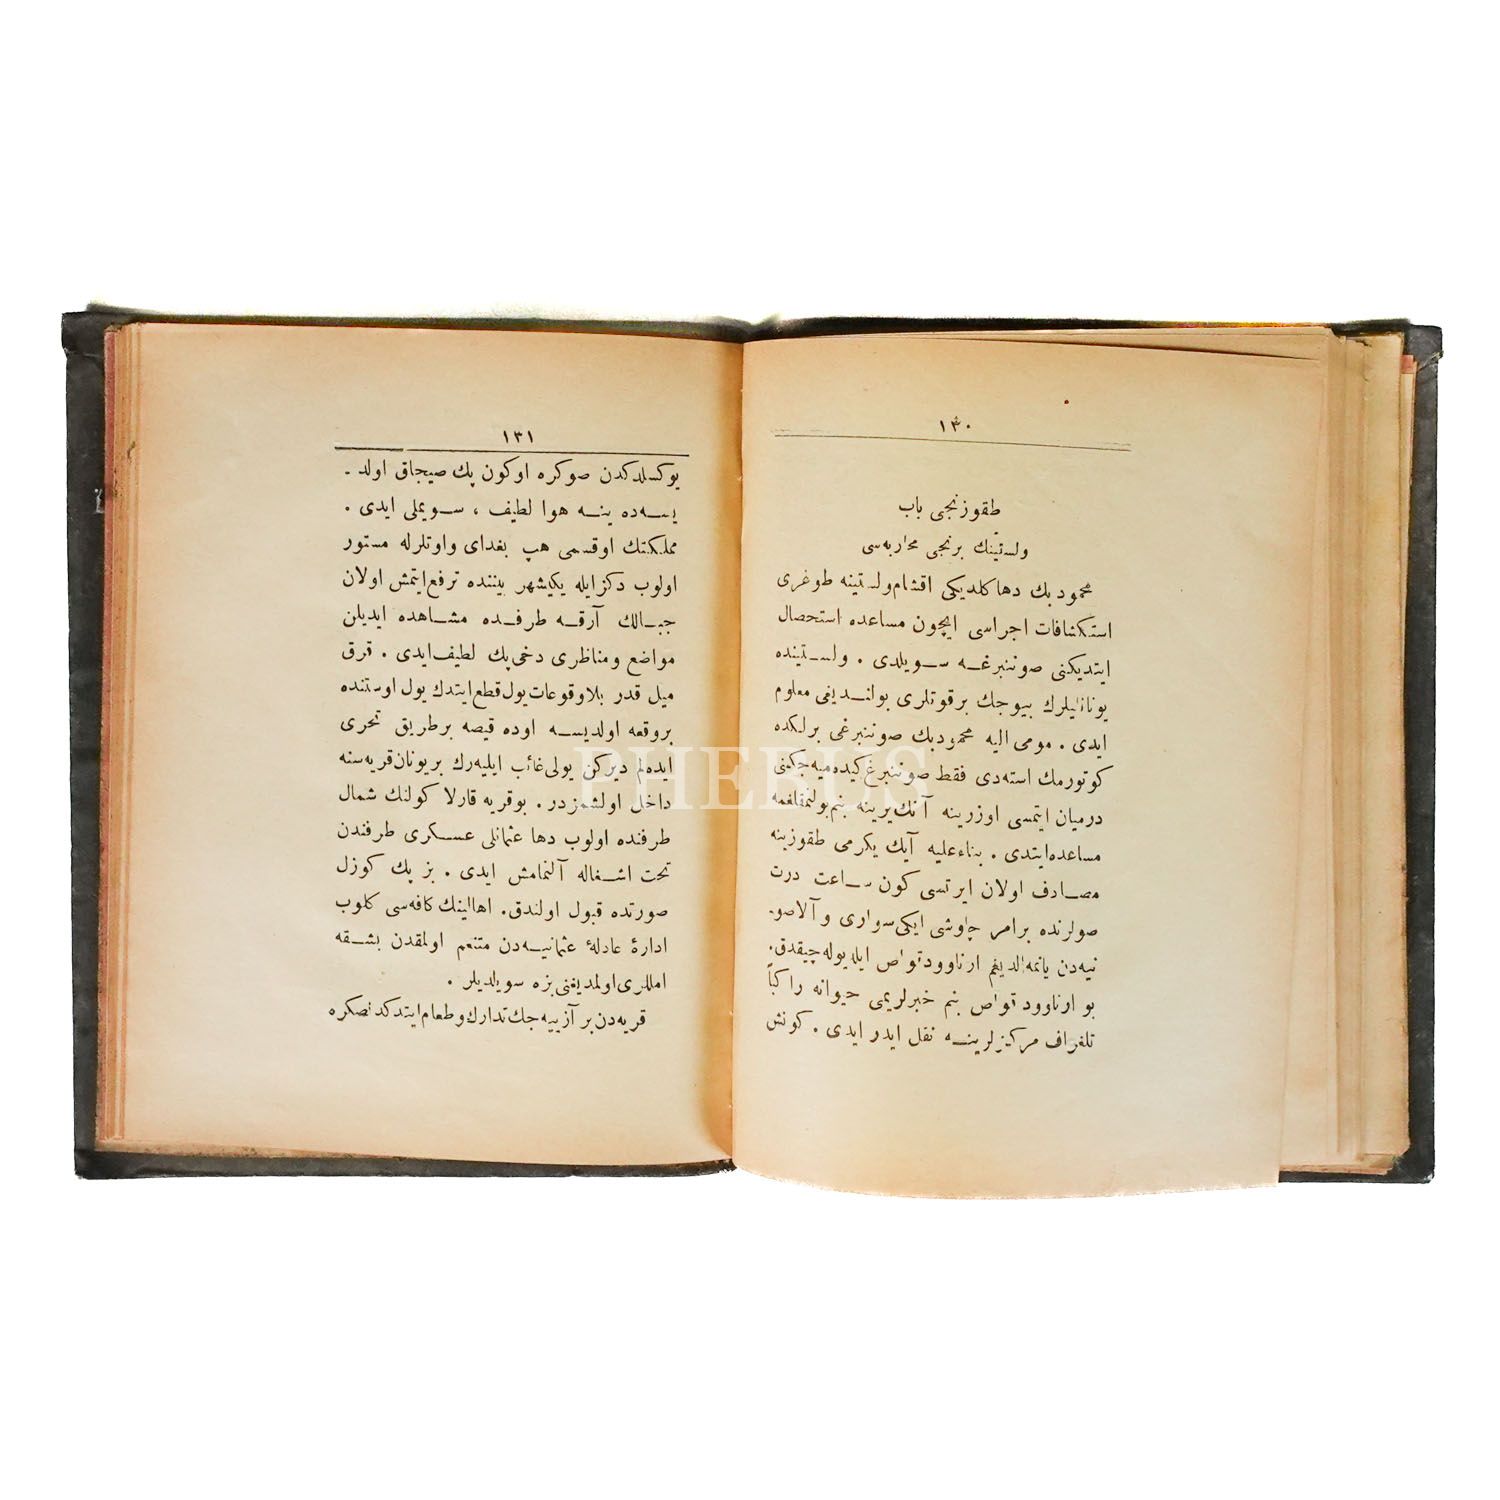 ١٣٠
طقوزنجی باب
ولستینك برنجی محاربه‌سی
محمود بك دها كلدیكی اقشام ولستینه طوغری
استكشافات اجراسی ایچون مساعده استحصال
ایتدیكنی صوننبرغه سویلدی . ولستینده
یونانلیلرك بیوجك برقوتلری بولندیغی معلوم
ایدی . مومی الیه محمود بك صوننبرغی برلكده
كوتورمك استه‌دی فقط صوننبرغ كیده‌میه‌جكنی
درمیان ایتمسی اوزرینه آنك یرینه بنم بولنمقلغمه
مساعده ایتدی . بناء علیه آیك یكرمی طقوزینه
مصادف اولان ایرتسی كون ساعت درت
صولرنده برامر چاوشی ایكی سواری و آلاصو-
نیه‌دن یانمه آلدیغم ارناوود قواص ایله یوله چیقدق.
بو ارناوود قواص بنم خبرلریمی حیوانه راكباً
تلغراف مركزلرینه نقل ایدر ایدی . كونش
١٣١
یوكسلدكدن صوكره اوكون پك صیجاق اولد -
یسه‌ده ینه هوا لطیف ، سویملی ایدی .
مملكتك اوقسمی هپ بغدای واوتلرله مستور
اولوب دكز ایله یكیشهر بیننده ترفع ایتمش اولان
جبالك آرقه طرفنده مشاهده ایدیلن
مواضع ومناظری دخی پك لطیف ایدی . قرق
میل قدر بلاوقوعات یول قطع ایتدك یول اوستنده
بروقعه اولدیسه اوده قیصه برطریق تحری
ایده‌لم دیركن یولی غائب ایلیه‌رك بریونان قریه‌سنه
داخل اولشمزدر . بوقریه قارلا كولنك شمال
طرفنده اولوب دها عثمانلی عسكری طرفندن
تحت اشغاله آلنمامش ایدی . بز پك كوزل
صورتده قبول اولندق. اهالینك كافه‌سی كلوب
ادارهٔ عادلهٔ عثمانیه‌دن متنعم اولمقدن بشقه
امللری اولمدیغنی بزه سویلدیلر .
قریه‌دن بر آز ییه‌جك تدارك وطعام ایتدكدنصكره
PHEBUS